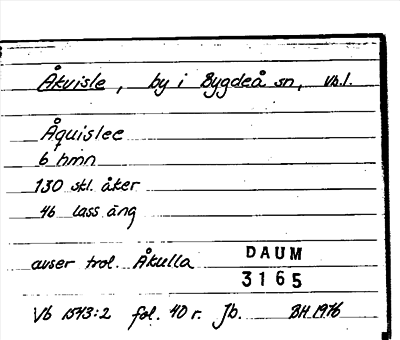 Åkvisle, by i Bygdeå sn, Vb.l.
Åquislee
6 hmn
130 skl. åker
46 lass äng
avser trol. Åkulla
DAUM
3165
Vb 1543:2 fol. 40 r. Jb. BH 1976